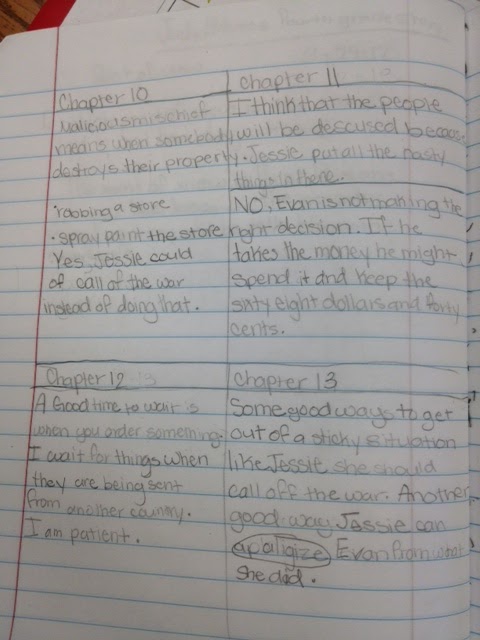 Chapter 10
Maliciousmischief
means when somebody
destroys their property.
•robbing a store
•spray paint the store
Yes, Jessie could
of call of the war
instead of doing that.
Chapter 11
I think that the people
will be descused becaos
Jessie put all the nasty
things in there.
NO, Evan is not making the
right decision. If he
takes the money he might
spend it and keep the
sixty eight dollars and forty
cents.
Chapter 12
A Good time to wait is
when you order something.
I wait for things when
they are being sent
from another country.
I am patient.
Chapter 13
Some good ways to get
out of a sticky situation
like Jessie she should
call off the war. Another
good way Jessie can
apaligize Evan from what
She did.